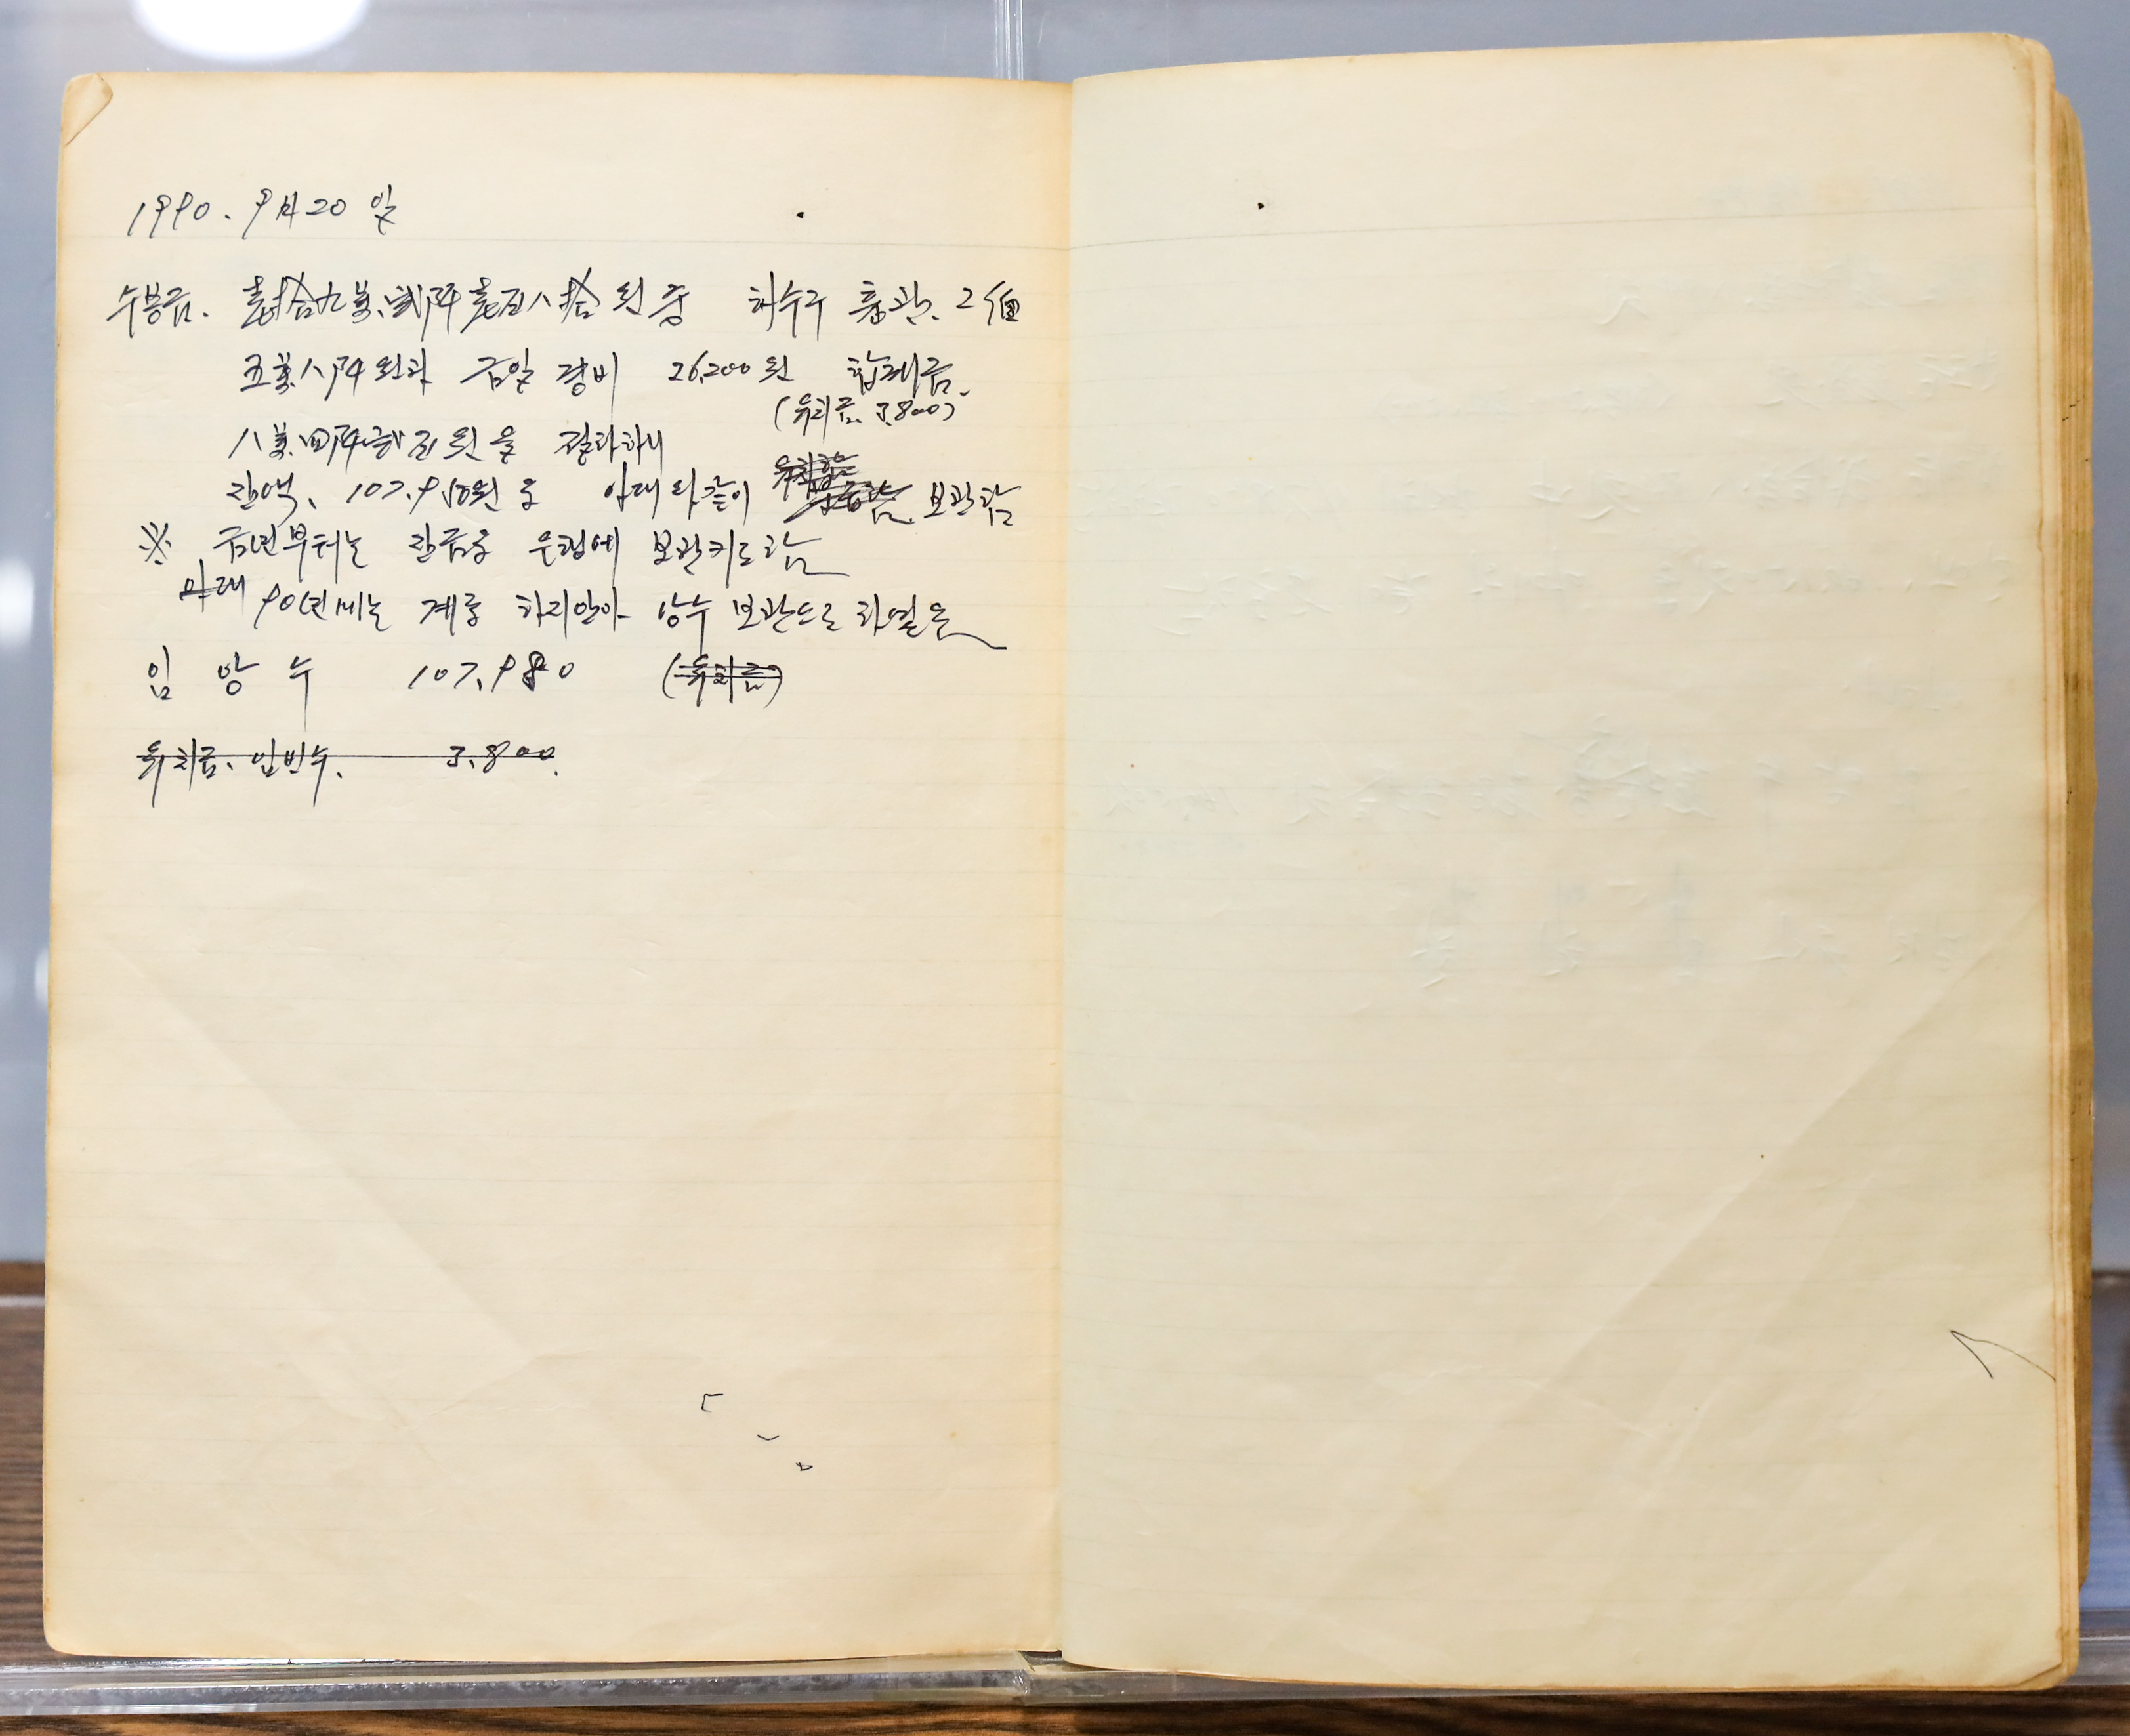 1990. 9月 20일
수봉금. 壹拾九萬、貳阡壹百八拾 원중 하수구 흄관. 2個
五萬八阡원과 금일 경비 26,200원 합계금.
(유치금. 3.800)
八萬四阡貳百원을 결과하니
잔액、107.980원을 아래와 같이 보관함
※ 금년부터는 잔금을 은행에 보관키로 함
아래 90년에는 계를 하지안아 앙수 보관으로
임 앙 수 107.980 (유치금)
유치금. 임빈수. 3.800.